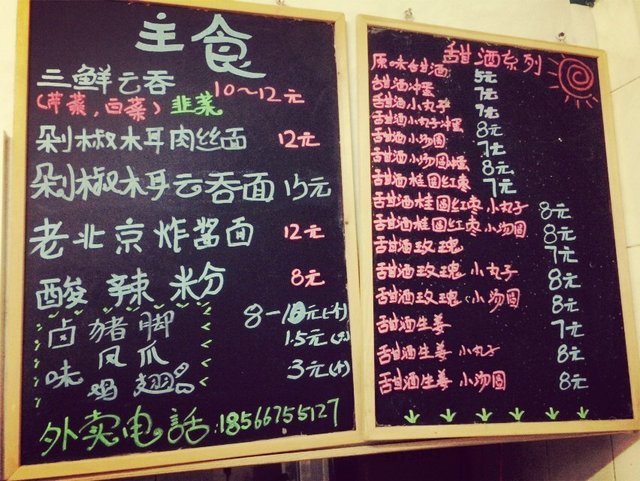 主食
三鲜云吞 10~12元
(芹菜,白菜) 韭菜
剁椒木耳肉丝面 12元
剁椒木耳云吞面 15元
老北京炸酱面 12元
酸辣粉 8元
卤味
猪脚 8-10元(个)
凤爪 1.5元
鸡翅 3元(个)
外卖电话:18566755127
甜酒系列
原味甜酒 5元
甜酒冲蛋 7元
甜酒小丸子 7元
甜酒小丸子冲蛋 8元
甜酒小汤圆 7元
甜酒小汤圆冲蛋 8元
甜酒桂圆红枣 7元
甜酒桂圆红枣小丸子 8元
甜酒桂圆红枣小汤圆 8元
甜酒玫瑰 7元
甜酒玫瑰小丸子 8元
甜酒玫瑰小汤圆 8元
甜酒生姜 7元
甜酒生姜小丸子 8元
甜酒生姜小汤圆 8元